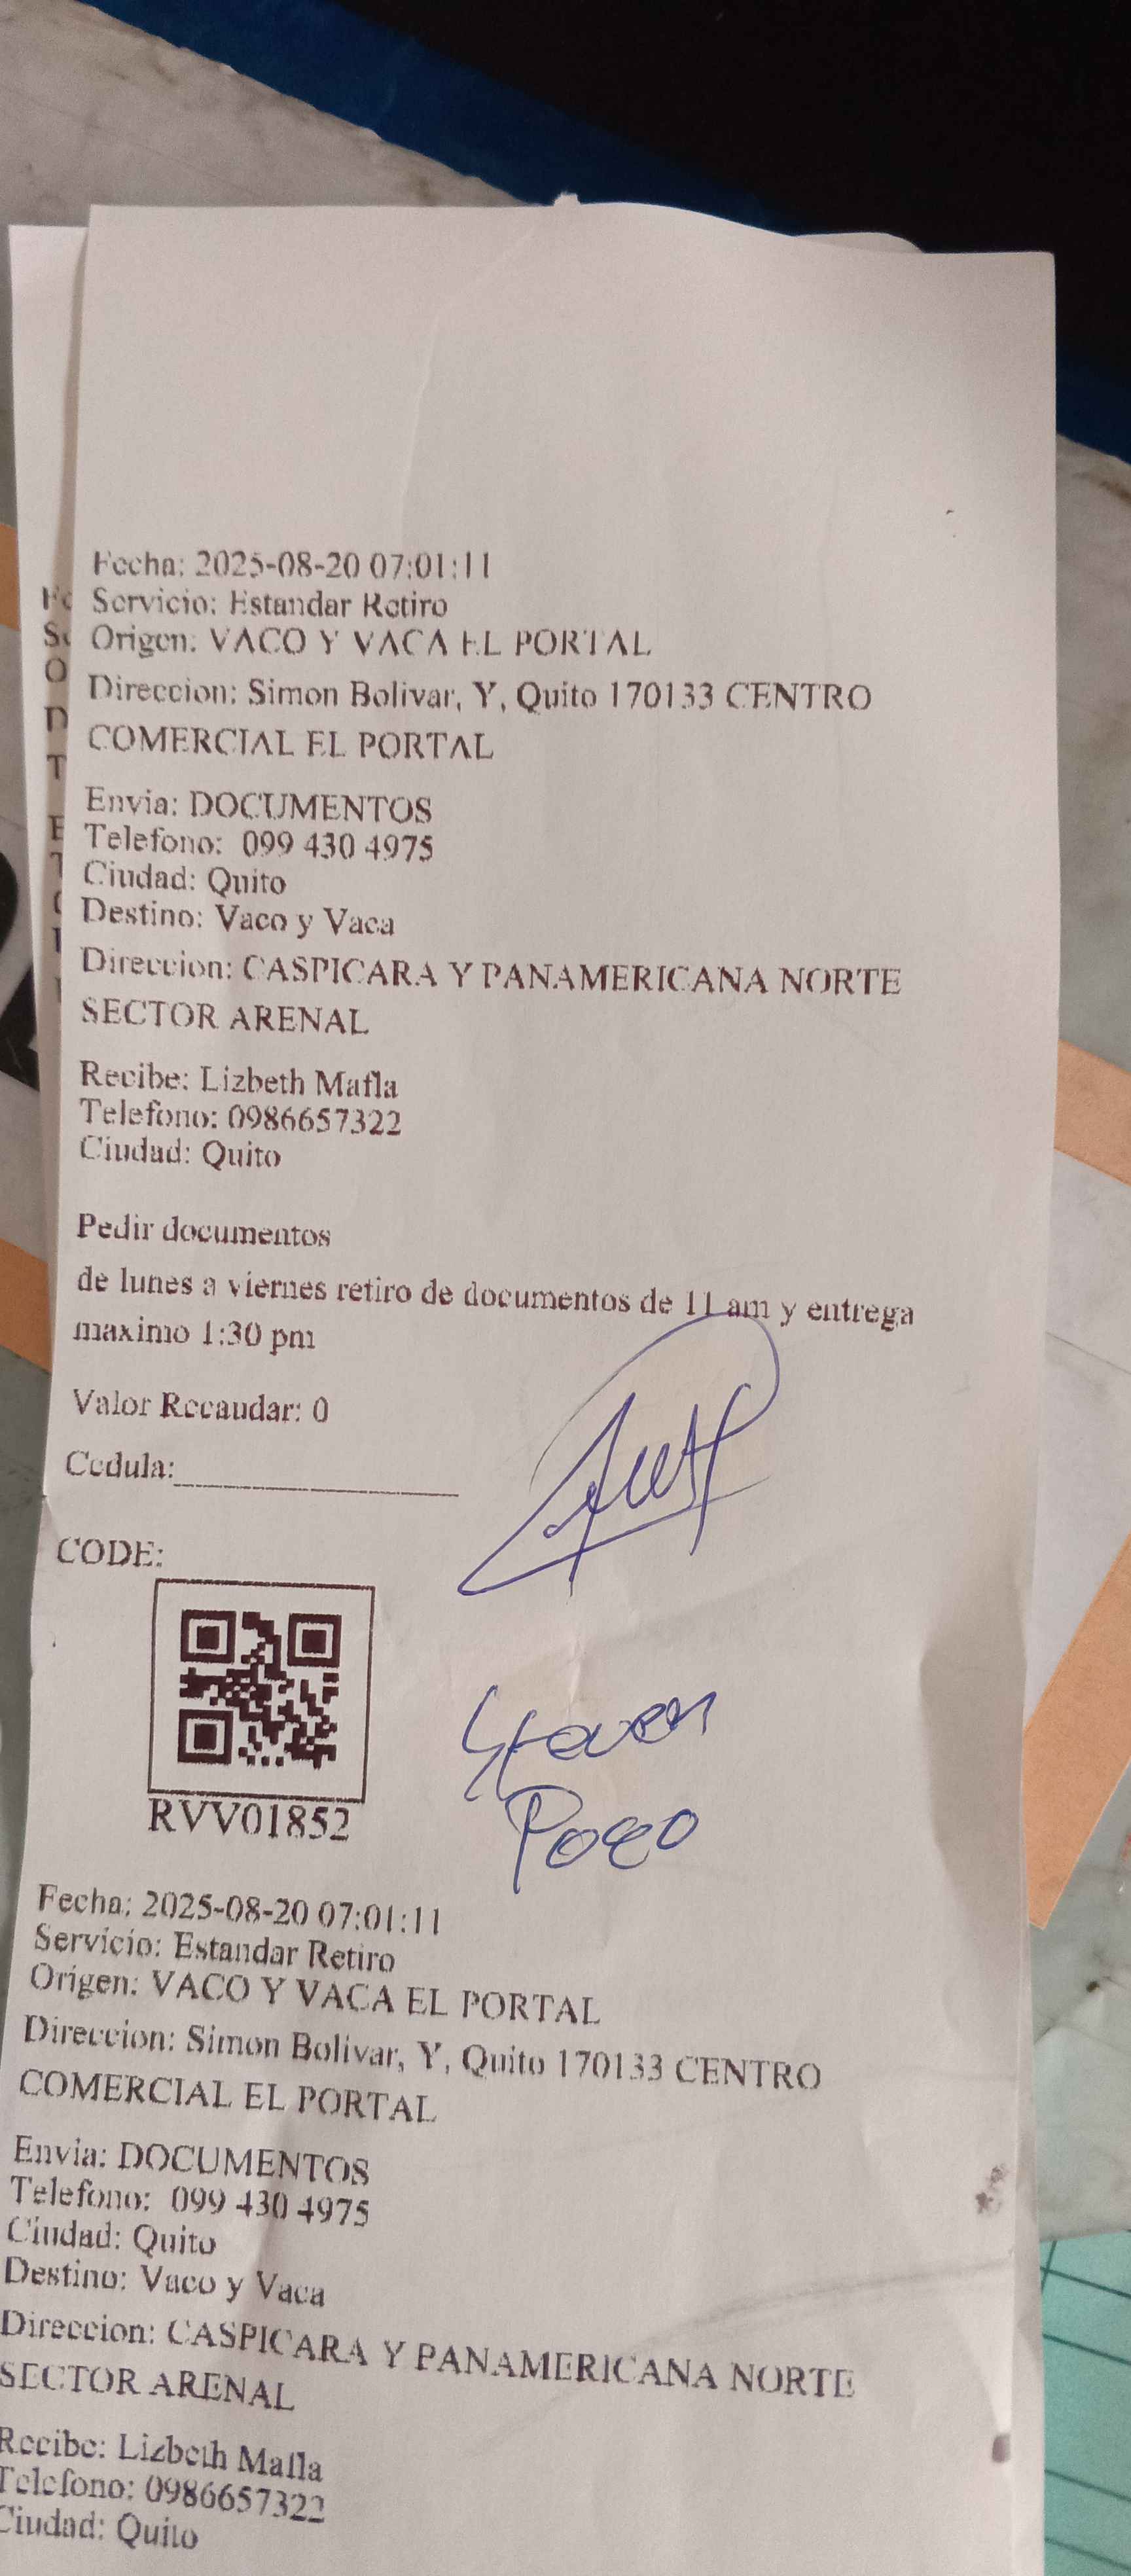 Fecha: 2025-08-20 07:01:11
Servicio: Estandar Retiro
Origen: VACO Y VACA EL PORTAL
Direccion: Simon Bolivar, Y, Quito 170133 CENTRO
COMERCIAL EL PORTAL
Envia: DOCUMENTOS
Telefono: 099 430 4975
Ciudad: Quito
Destino: Vaco y Vaca
Direccion: CASPICARA Y PANAMERICANA NORTE
SECTOR ARENAL
Recibe: Lizbeth Mafla
Telefono: 0986657322
Ciudad: Quito
Pedir documentos
de lunes a viernes retiro de documentos de 11 am y entrega
maximo 1:30 pm
Valor Recaudar: 0
Cedula:
CODE:
RVV01852
Steven
Fecha: 2025-08-20 07:01:11
Servicio: Estandar Retiro
Origen: VACO Y VACA EL PORTAL
Direccion: Simon Bolivar, Y, Quito 170133 CENTRO
COMERCIAL EL PORTAL
Envia: DOCUMENTOS
Telefono: 099 430 4975
Ciudad: Quito
Destino: Vaco y Vaca
Direccion: CASPICARA Y PANAMERICANA NORTE
SECTOR ARENAL
Recibe: Lizbeth Mafla
Telefono: 0986657322
Ciudad: Quito